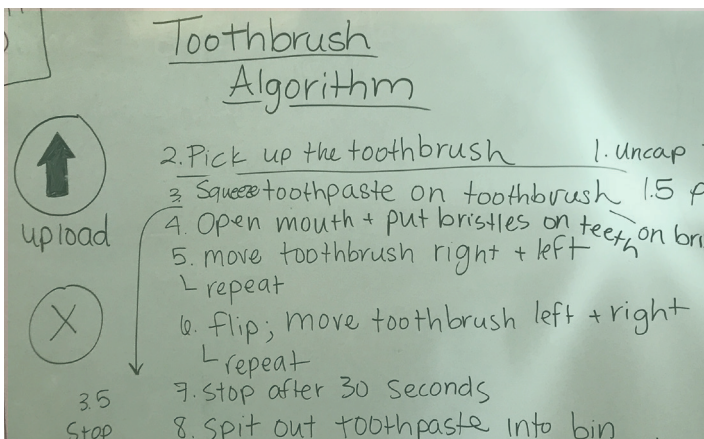 Toothbrush
Algorithm
2. Pick up the toothbrush 1. Uncap
3 Squeeze toothpaste on toothbrush 1.5
4. Open mouth + put bristles on teeth on
5. move toothbrush right + left
repeat
6. flip; move toothbrush left + right
repeat
7. Stop after 30 seconds
8. Spit out toothpaste into bin
upload
X
3.5
Stop